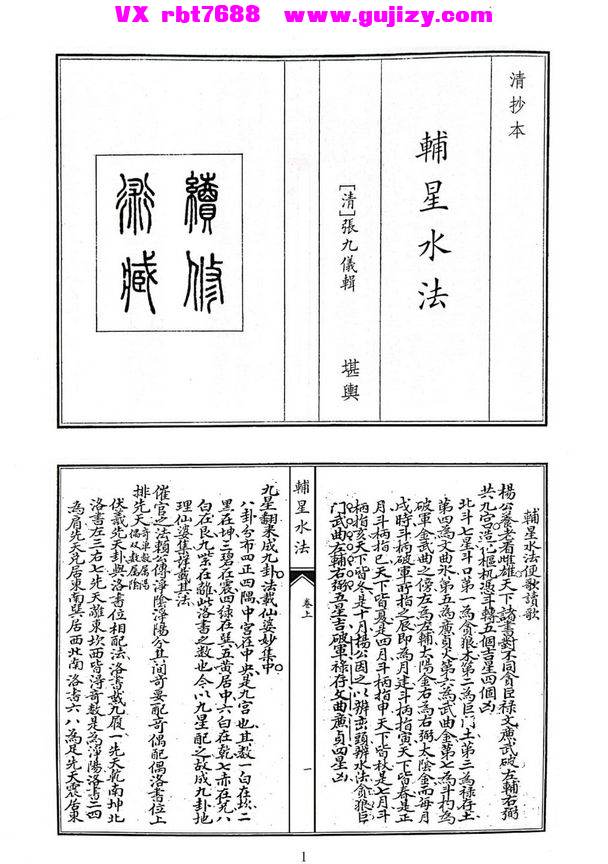 VX rbt7688 www.gujizy.com
清抄本
輔星水法
[清]張九儀輯 堪輿
續修
術藏
輔星水法便歌讀歌
楊公養老看雌雄天下諸書對不同貪巨祿文廉武破左輔右弼
共九宮造化樞机憑斗轉五個吉星四個凶
北斗七星斗口第一為貪狼木第二為巨門土第三為祿存土
第四為文曲水第五為廉貞火第六為武曲金第七為斗杓為
破軍金武曲之傍左為左輔太陽金右為右弼太陰金而每月
戌時斗柄破軍所指之辰即為月建斗柄指寅天下皆春是正
月斗柄指巳天下皆夏是四月斗柄指申天下皆秋是七月斗
柄指亥天下皆冬是十月楊公因之以辨巒頭辨水法貪狼巨
門武曲左輔右弼五星吉破軍祿存文曲廉貞四星凶
輔星水法 卷上 一
九星翻来成九卦法載仙婆妙集中
八卦分布四正四隅中宮在中央是九宮也其数一白在坎二
黑在坤三碧在震四綠在巽五黃居中六白在乾七赤在兌八
白在艮九紫在離此洛書之数也今以九星配之故成九卦地
理仙婆集詳載其法
催官之法賴公傳淨陰淨陽分其間奇要配奇偶配偶洛書位上
排先天
伏羲先天卦與洛書位相配法洛書戴九履一先天乾南坤北
洛書左三右七先天離東坎西皆得奇数是為淨陽洛書二四
為肩先天兌居東南巽居西南洛書六八為足先天震居東
1